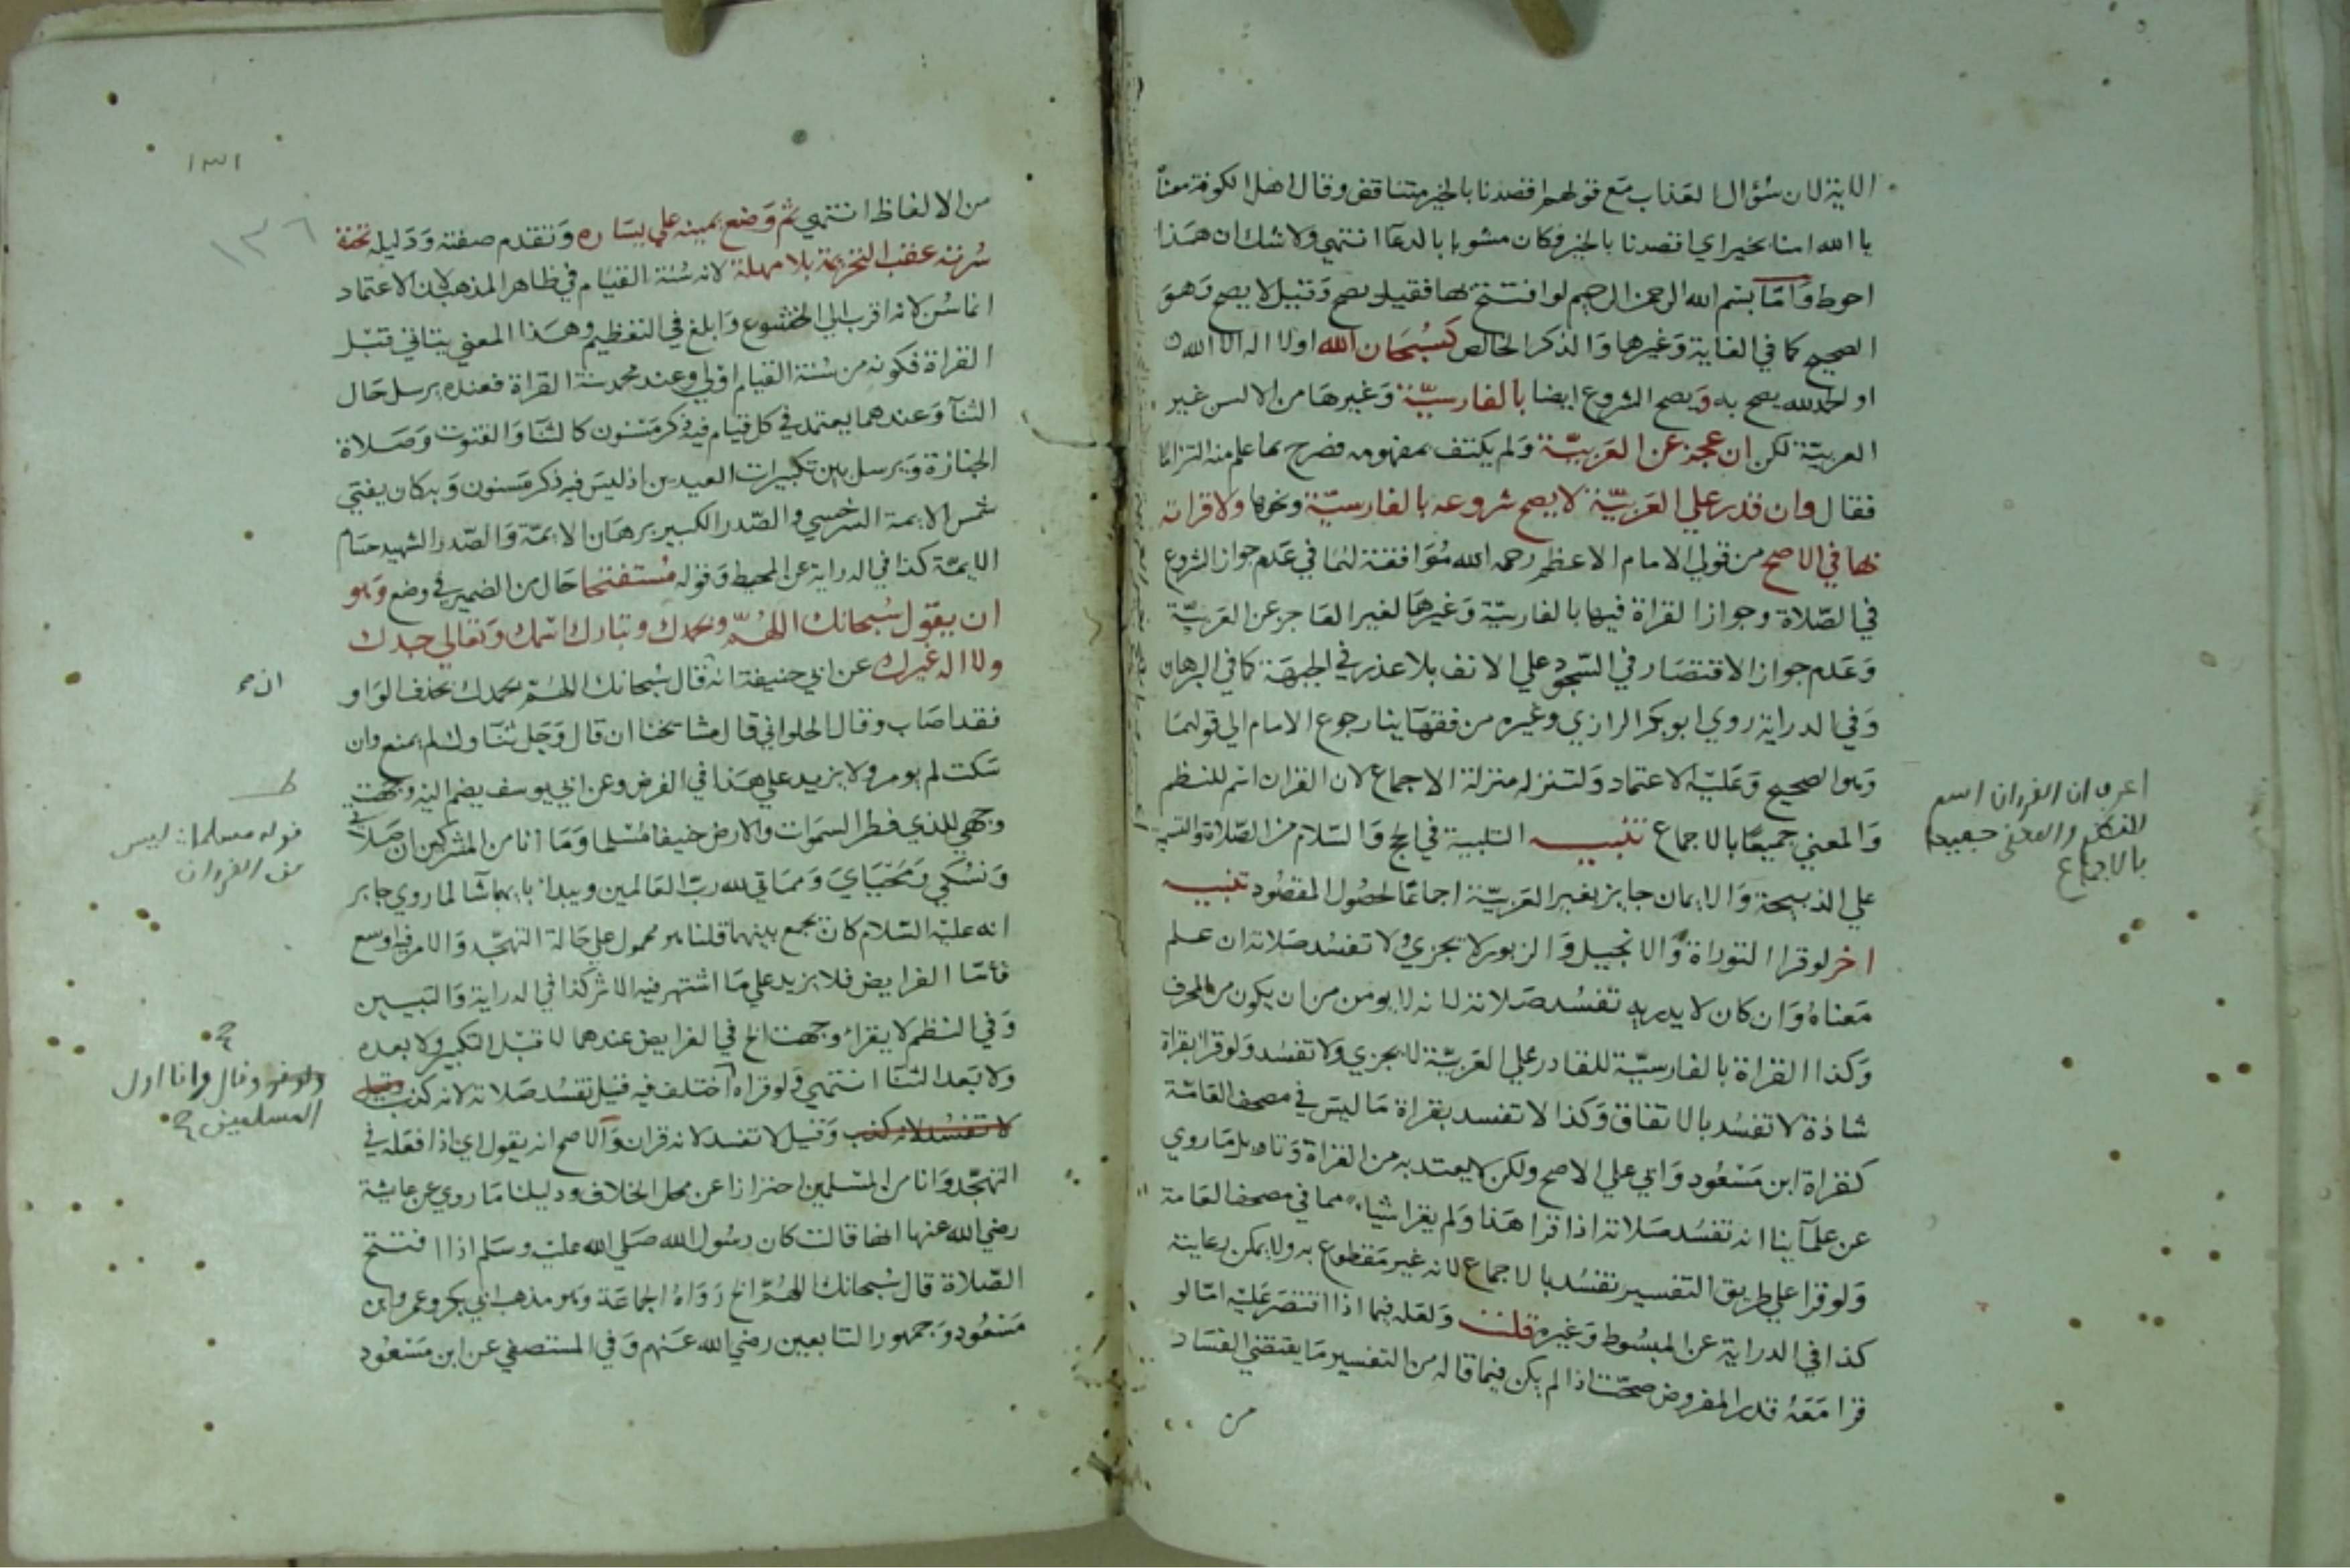 الاية لان سؤال العذاب مع قولهم اقصدنا بالخير متناقض وقال اهل الكوفة معناه
يا الله امنا بخير اي اقصدنا بالخير فكان مشوبا بالدعا انتهي ولا شك ان هذا
احوط واما بسم الله الرحمن الرحيم لو افتتح بها فقيل يصح وقيل لا يصح وهو
الصحيح كما في الغاية وغيرها والذكر الخالص كسبحان الله او لا اله الا الله
او الحمد لله يصح به ويصح الشروع ايضا بالفارسية وغيرها من الالسن غير
العربية لكن ان عجز عن العربية ولم يكتف بمفهومه فصرح بما علم منه التزاما
فقال وان قدر علي العربية لا يصح شروعه بالفارسية ونحوها ولا قراته
بها في الاصح من قولي الامام الاعظم رحمه الله موافقة لهما في عدم جواز الشروع
في الصلاة وجواز القراة فيها بالفارسية وغيرها لغير العاجز عن العربية
وعدم جواز الاقتصار في السجود علي الانف بلا عذر في الجبهة كما في البرهان
وفي الدراية روي ابو بكر الرازي وغيره من فقهاينا رجوع الامام الي قولهما
وهو الصحيح وعليه الاعتماد ولتنزله منزلة الاجماع لان القران اسم للنظم
والمعني جميعا بالاجماع تنبيه التلبية في الحج والسلام من الصلاة والتسمية
علي الذبيحة والايمان جايز بغير العربية اجماعا لحصول المقصود تنبيه
اخر لو قرا التوراة والانجيل والزبور لا يجزي ولا تفسد صلاته ان علم
معناه وان كان لا يدريه تفسد صلاته لانه لا يومن من ان يكون من المحرف
وكذا القراة بالفارسية للقادر علي العربية لا يجزي ولا تفسد ولو قرا بقراة
شاذة لا تفسد بالاتفاق وكذا لا تفسد بقراة ما ليس في مصحف العامة
كقراة ابن مسعود وابي علي الاصح ولكن لا يعتد به من القراة وتاويل ما روي
عن علماينا انه تفسد صلاته اذا قرا هذا ولم يقرا شيا مما في مصحف العامة
ولو قرا علي طريق التفسير تفسد بالاجماع لانه غير مقطوع به ولا يمكن رعايته
كذا في الدراية عن المبسوط وغيره قلت ولعله فيما اذا اقتصر عليه اما لو
قرا معه قدر المفروض صحت اذا لم يكن فيما قاله من التفسير ما يقتضي الفساد
من
اعرب ان القران اسم
للنظم والمعنى جميعا
بالاجماع
١٣١
١٣٦
من الالفاظ انتهي ثم وضع يمينه علي يساره وتقدم صفته ودليله تحت
سرته عقب التحريمة بلا مهلة لانه سنة القيام في ظاهر المذهب لان الاعتماد
انما سن لانه اقرب الي الخشوع وابلغ في التعظيم وهذا المعني يتاتي قبل
القراة فكونه من سنة القيام اولي وعند محمد سنة القراة فعنده يرسل حال
الثنا وعندهما يعتمد في كل قيام فيه ذكر مسنون كالثنا والقنوت وصلاة
الجنازة ويرسل بين تكبيرات العيدين اذ ليس فيه ذكر مسنون وبه كان يفتي
شمس الايمة السرخسي والصدر الكبير برهان الايمة والصدر الشهيد حسام
الايمة كذا في الدراية عن المحيط وقوله مستفتحا حال من الضمير في وضع وهو
ان يقول سبحانك اللهم وبحمدك وتبارك اسمك وتعالي جدك
ولا اله غيرك عن ابي حنيفة انه قال سبحانك اللهم بحمدك بحذف الواو
فقد اصاب وقال الحلواني قال مشايخنا ان قال وجل ثناوك لم يمنع وان
سكت لم يومر ولا يزيد علي هذا في الفرض وعن ابي يوسف يضم اليه وجهت
وجهي للذي فطر السموات والارض حنيفا مسلما وما انا من المشركين ان صلاتي
ونسكي ومحياي ومماتي لله رب العالمين ويبدا بايهما شا لما روي جابر
انه عليه السلام كان يجمع بينهما قلنا هو محمول علي حالة التهجد والامر فيه اوسع
فاما الفرايض فلا يزيد علي ما اشتهر فيه الاثر كذا في الدراية والتبيين
وفي النظم لا يقرا وجهت الخ في الفرايض عندهما لا قبل التكبير ولا بعده
ولا بعد الثنا انتهي ولو قراه اختلف فيه قيل تفسد صلاته لانه كذب وقيل
لا تفسد لانه كذب وقيل لا تفسد لانه قران والاصح انه يقول اي اذا فعله في
التهجد وانا من المسلمين احترازا عن محل الخلاف ودليلنا ما روي عن عايشة
رضي الله عنها انها قالت كان رسول الله صلي الله عليه وسلم اذا افتتح
الصلاة قال سبحانك اللهم الخ رواه الجماعة وهو مذهب ابي بكر وعمر وابن
مسعود وجمهور التابعين رضي الله عنهم وفي المستصفي عن ابن مسعود
ط
قوله مسلما ليس
من القران
وقال وانا اول
المسلمين